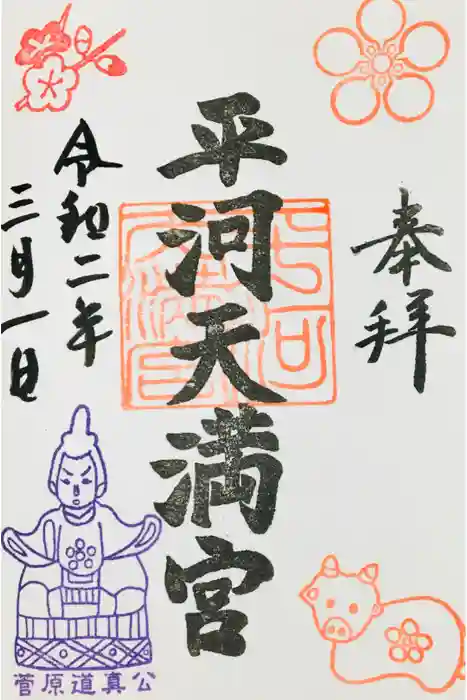 奉拝
平河天満宮
令和二年
三月一日
菅原道真公